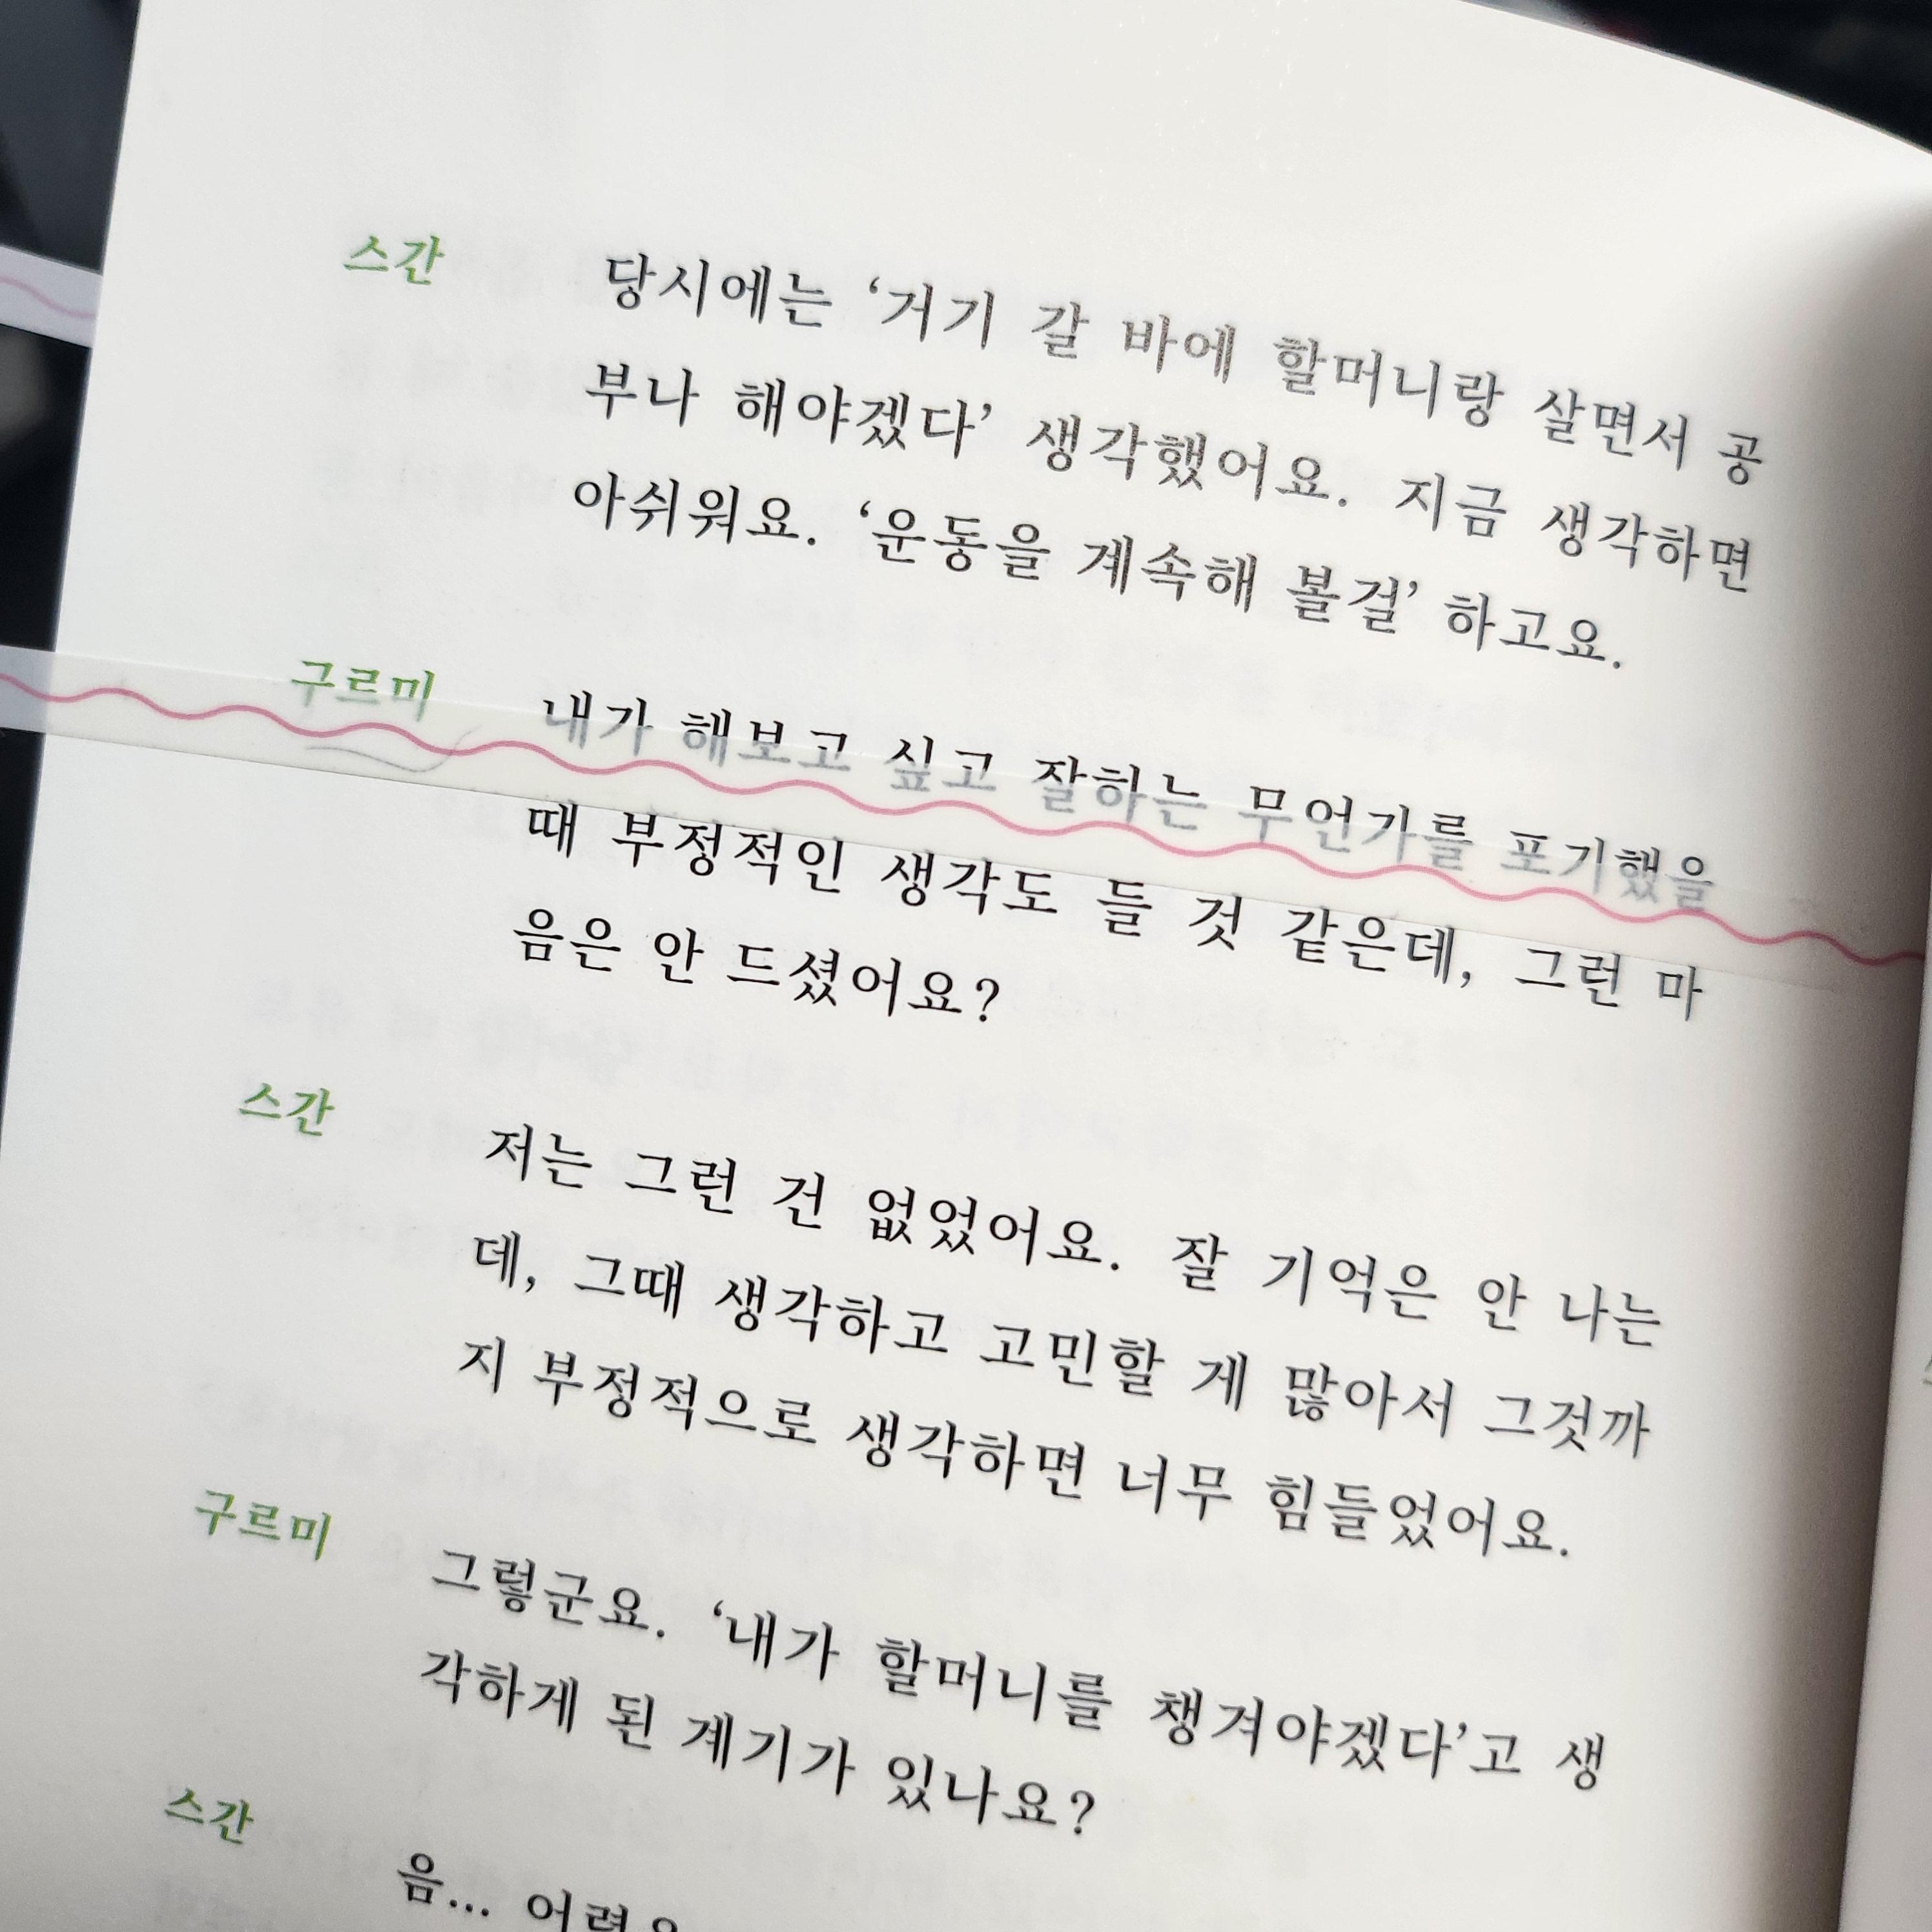 스간 당시에는 ‘거기 갈 바에 할머니랑 살면서 공
부나 해야겠다’ 생각했어요. 지금 생각하면
아쉬워요. ‘운동을 계속해 볼걸’ 하고요.
구르미 내가 해보고 싶고 잘하는 무언가를 포기했을
때 부정적인 생각도 들 것 같은데, 그런 마
음은 안 드셨어요?
스간 저는 그런 건 없었어요. 잘 기억은 안 나는
데, 그때 생각하고 고민할 게 많아서 그것까
지 부정적으로 생각하면 너무 힘들었어요.
구르미 그렇군요. ‘내가 할머니를 챙겨야겠다’고 생
각하게 된 계기가 있나요?
스간 음...